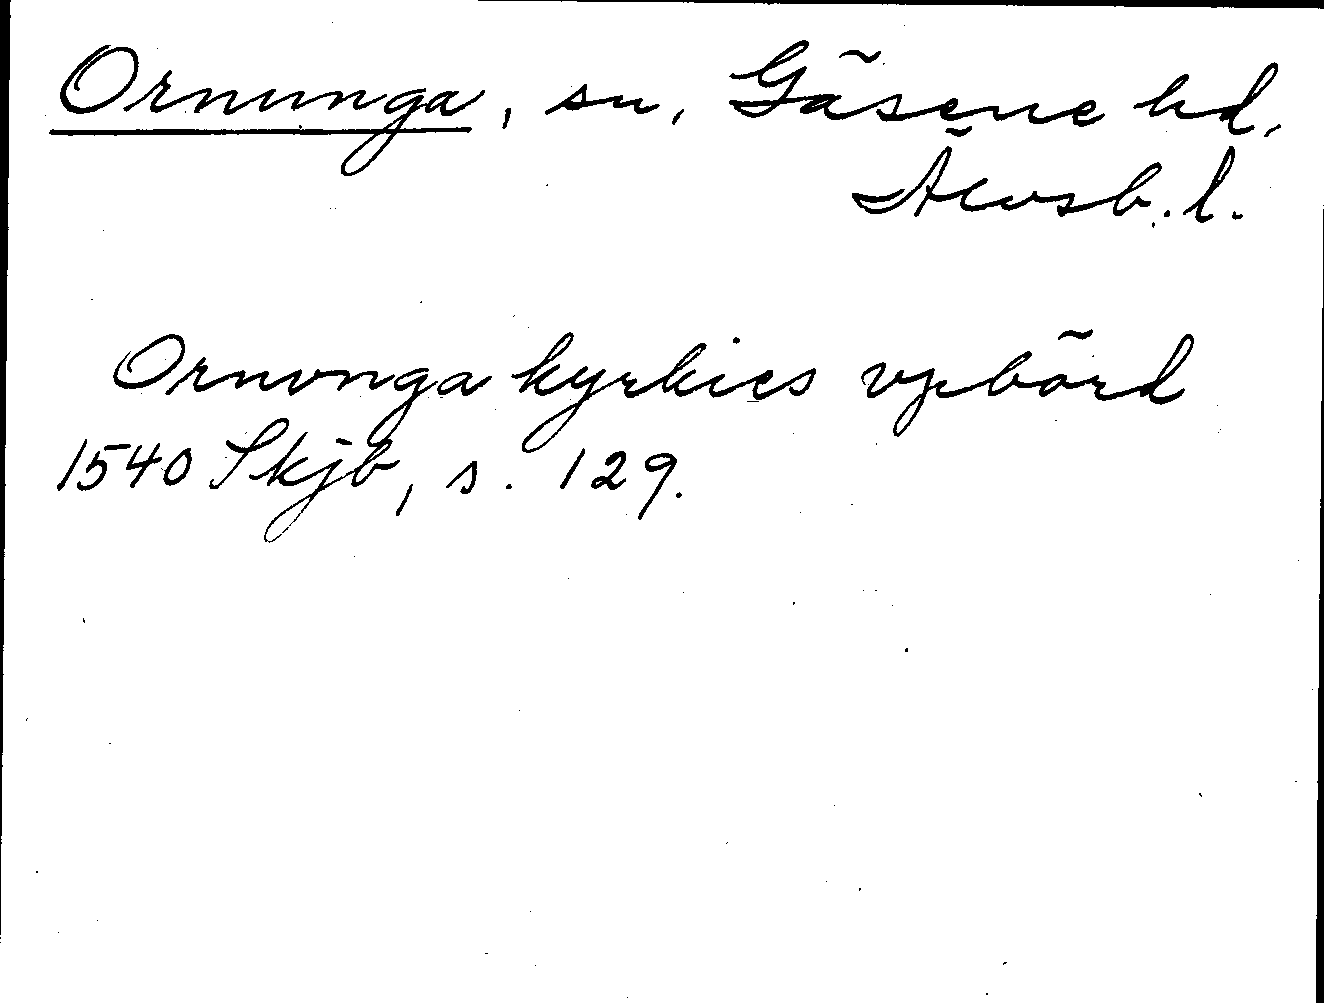 Ornunga, sn, Gäsene hd,
Älvsb. l.
Ornvnga kyrkies vpbörd
1540 Skjb, s. 129.